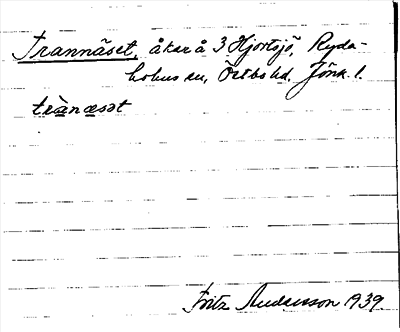 Trannäset, åker å 3 Hjortsjö, Ryda-
holms sn, Östbo hd. Jönk. l.
trànæsət
Fritz Andersson 1939